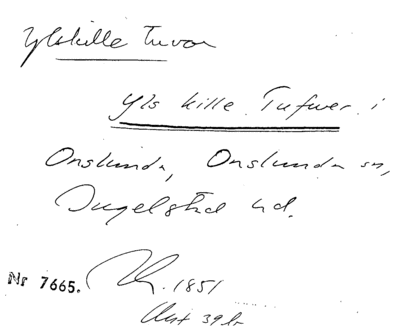 Ylskille Tuvor
Yls kille Tufwer i
Onslunda, Onslunda sn,
Ingelstad hd.
Nr 7665. 1851
Akt 39